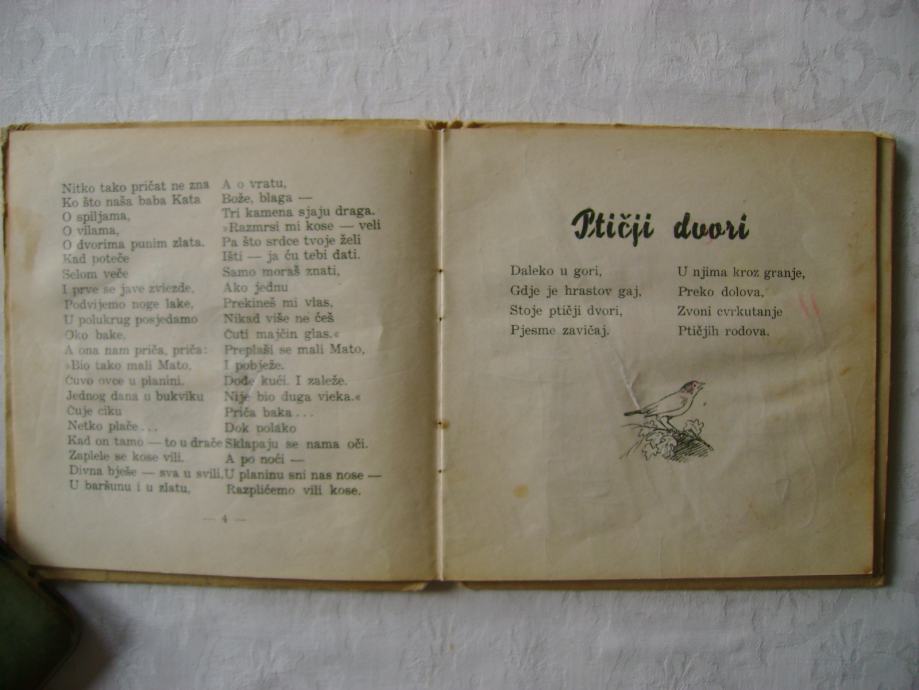 Nitko tako pričat ne zna
Ko što naša baba Kata
O spiljama,
O vilama,
O dvorima punim zlata.
Kad poteče
Selom veče
I prve se jave zviezde,
Podvijemo noge lake,
U polukrug posjedamo
Oko bake,
A ona nam priča, priča:
»Bio tako mali Mato,
Čuvo ovce u planini.
Jednog dana u bukviku
Čuje ciku
Netko plače...
Kad on tamo — to u drače
Zaplele se kose vili.
Divna bješe — sva u svili,
U baršunu i u zlatu,
A o vratu,
Bože, blaga —
Tri kamena sjaju draga.
»Razmrsi mi kose — veli
Pa što srdce tvoje želi
Išti — ja ću tebi dati.
Samo moraš znati,
Ako jednu
Prekineš mi vlas,
Nikad više ne ćeš
Čuti majčin glas.«
Preplaši se mali Mato,
I pobježe.
Dođe kući. I zaleže.
Nije bio duga vieka.«
Priča baka...
Dok polako
Sklapaju se nama oči.
A po noći —
U planinu sni nas nose —
Razplićemo vili kose.
— 4 —
Ptičji dvori
Daleko u gori,
Gdje je hrastov gaj,
Stoje ptičji dvori,
Pjesme zavičaj.
U njima kroz granje,
Preko dolova,
Zvoni cvrkutanje
Ptičjih rodova.